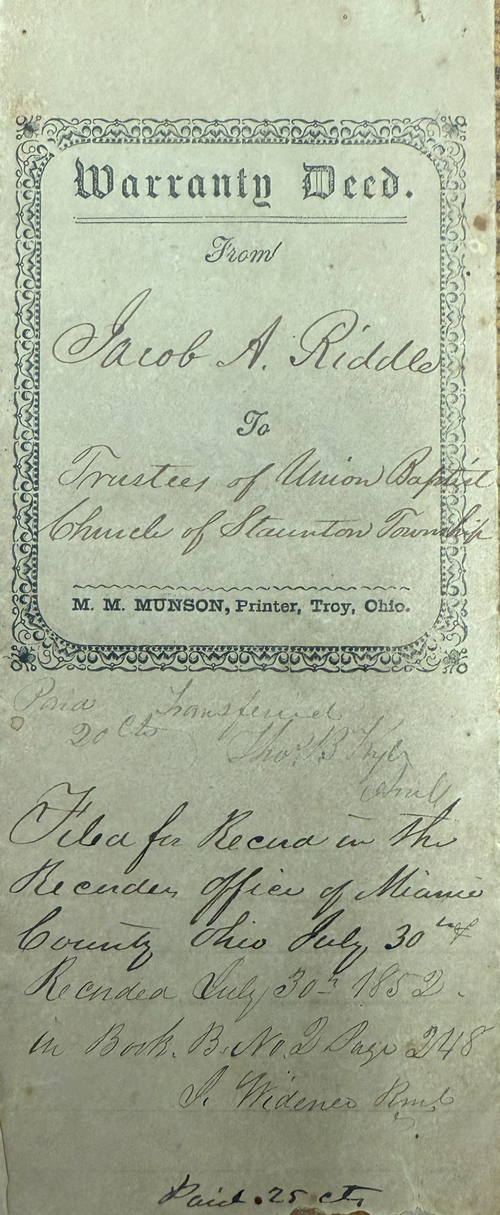 Warranty Deed.
From
Jacob A. Riddle
To
Trustees of Union Baptist
Church of Staunton Township
M. M. MUNSON, Printer, Troy, Ohio.
Paid Transferred
20 Cts Thos. B. Kyle
Filed for Record in the
Recorders office of Miami
County Ohio July 30
Recorded July 30th 1852.
in Book. B. No. 2 Page 248
J. Widener
Paid. 25 cts